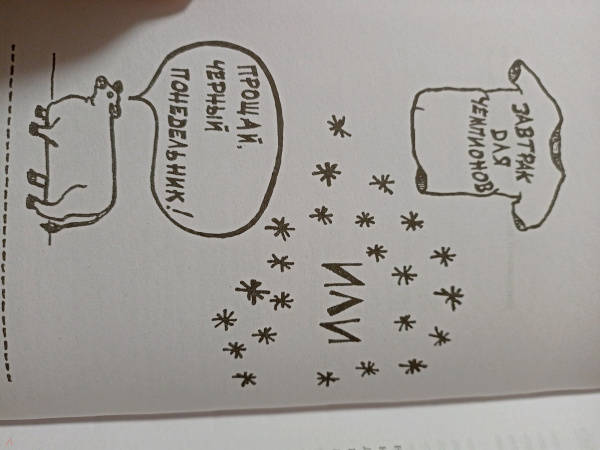 ЗАВТРАК
ДЛЯ
ЧЕМПИОНОВ
ИЛИ
ПРОЩАЙ,
ЧЕРНЫЙ
ПОНЕДЕЛЬНИК!